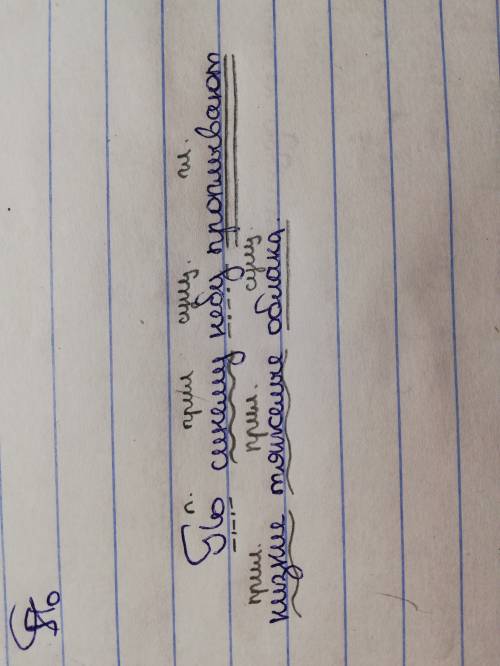 По
п. прил сущ. гл.
По синему небу проплывают
прил. прил. сущ.
низкие тяжелые облака.